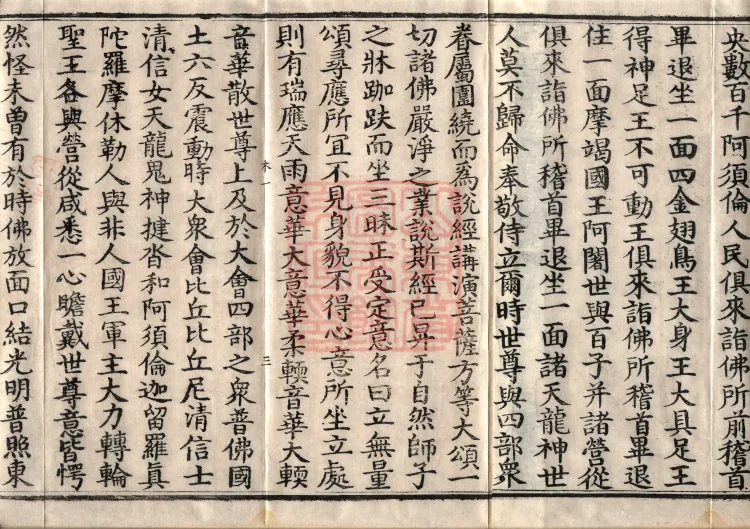 央數百千阿須倫人民俱來詣佛所前稽首
畢退坐一面四金翅鳥王大身王大具足王
得神足王不可動王俱來詣佛所稽首畢退
住一面摩竭國王阿闍世與百子并諸營從
俱來詣佛所稽首畢退坐一面諸天龍神世
人莫不歸命奉敬侍立爾時世尊與四部衆
眷屬圍繞而為說經講演菩薩方等大頌一
切諸佛嚴淨之業說斯經已昇于自然師子
之牀跏趺而坐三昧正受定意名曰立無量
頌尋應所宜不見身貌不得心意所坐立處
則有瑞應天雨意華大意華柔軟音華大軟
音華散世尊上及於大會四部之衆普佛國
土六反震動時大衆會比丘比丘尼清信士
清信女天龍鬼神揵沓和阿須倫迦留羅真
陀羅摩休勒人與非人國王軍主大力轉輪
聖王各與營從咸悉一心瞻戴世尊意皆愕
然怪未曾有於時佛放面口結光明普照東